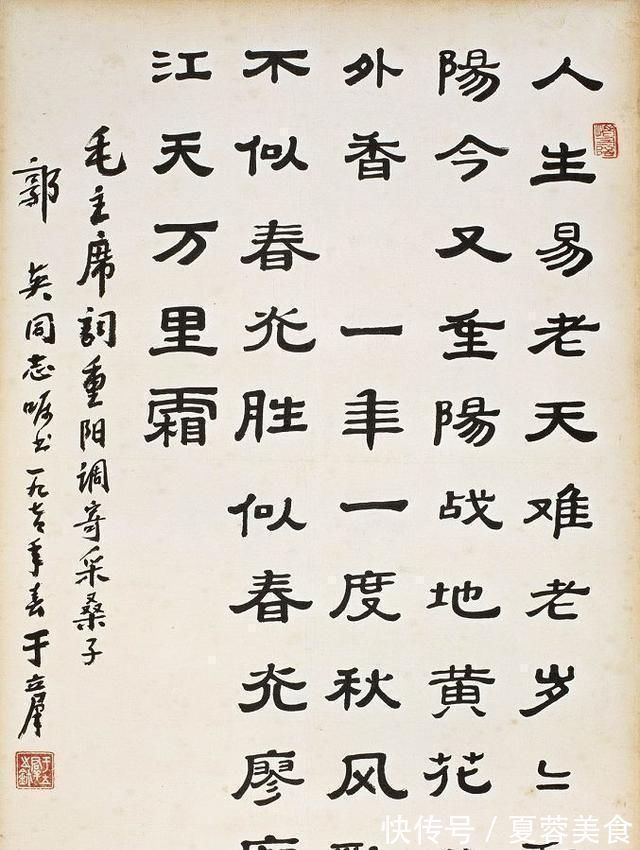 人生易老天难老岁〻
陽今又重陽战地黄花
外香 一年一度秋风
不似春光胜似春光廖
江天万里霜
毛主席詞重阳调寄采桑子
郭 英同志嘱书一九七七年春于立群
快传号 / 夏蓉美食